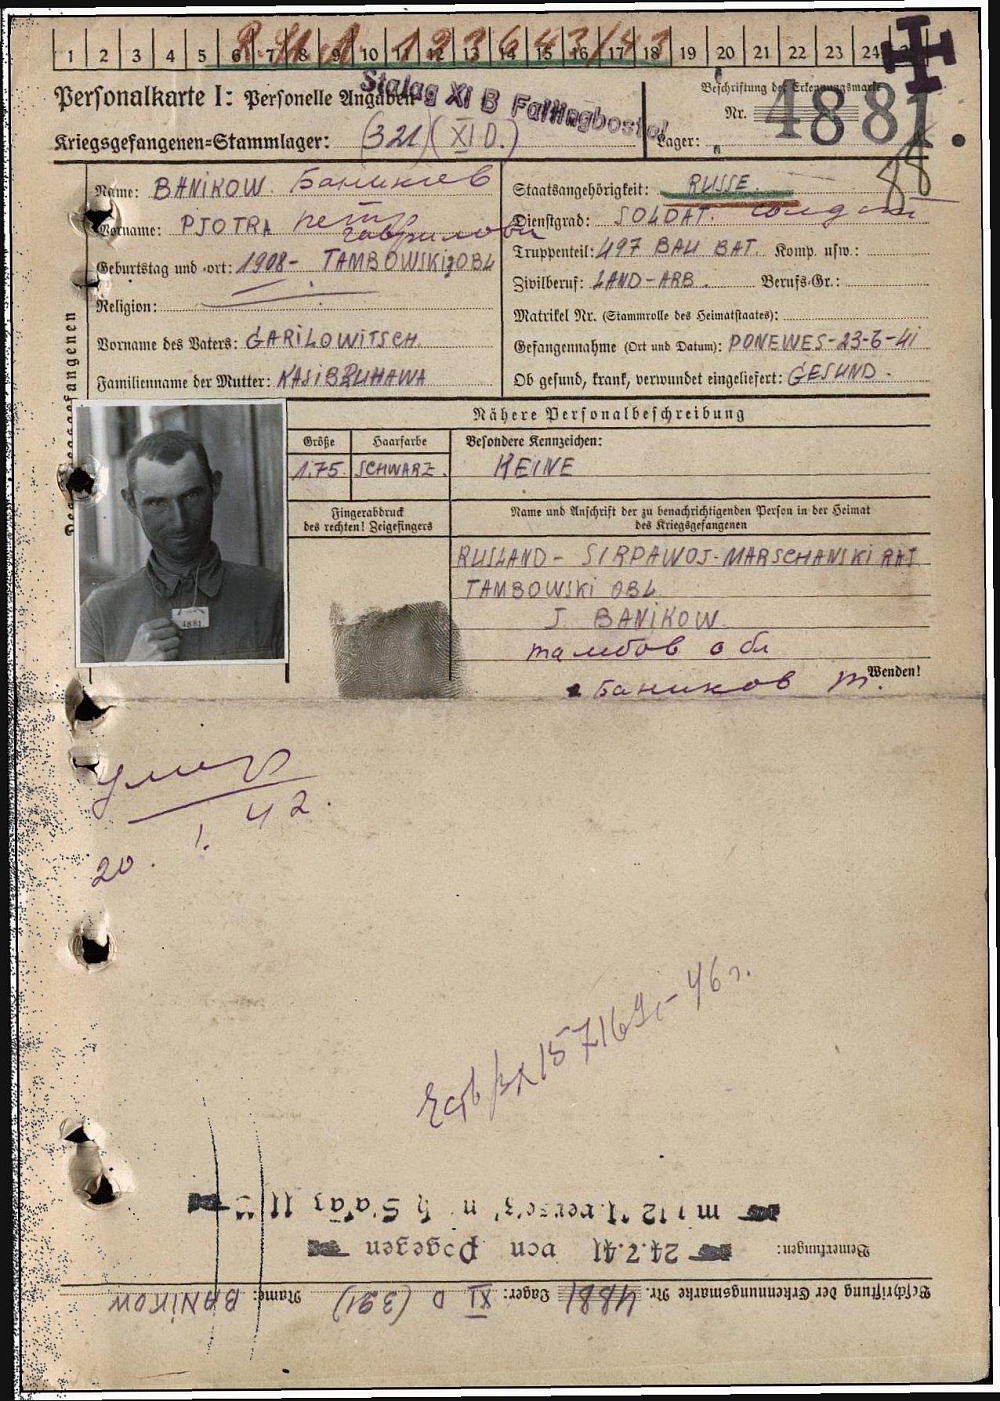 1 2 3 4 5 6 7 8 9 10 11 12 13 14 15 16 17 18 19 20 21 22 23 24
Personalkarte I: Personelle Angaben
Stalag XI B Fallingbostel
Beschriftung der Erkennungsmarke
Nr. 4881.
Kriegsgefangenen=Stammlager: (321) (XI D.)
Lager:
88
Name: BANIKOW Баников
Vorname: PJOTRA Петр
Гаврилович
Geburtstag und =ort: 1908- TAMBOWSKI OBL
Religion:
Vorname des Vaters: GARILOWITSCH
Familienname der Mutter:
Staatsangehörigkeit: RUSSE
Dienstgrad: SOLDAT. солдат
Truppenteil: 497 BAU BAT. Komp. usw.:
Zivilberuf: LAND-ARB. Berufs-Gr.:
Matrikel Nr. (Stammrolle des Heimatstaates):
Gefangennahme (Ort und Datum): PONEWES-23-6-41
Ob gesund, krank, verwundet eingeliefert: GESUND.
Nähere Personalbeschreibung
Größe Haarfarbe Besondere Kennzeichen:
1.75 SCHWARZ. KEINE
4881
Fingerabdruck
des rechten! Zeigefingers
Name und Anschrift der zu benachrichtigenden Person in der Heimat
des Kriegsgefangenen
RUSLAND- SIRPAWOJ-MARSCHANSKI RAJ
TAMBOWSKI OBL
J. BANIKOW
тамбов обл
Баников т.
Wenden!
умер
20. 1. 42.
46 г.
24.7.41 von Pogegen
Bemerkungen:
Beschriftung der Erkennungsmarke Nr. 4881 Lager: XI D (321) Name: BANIKOW